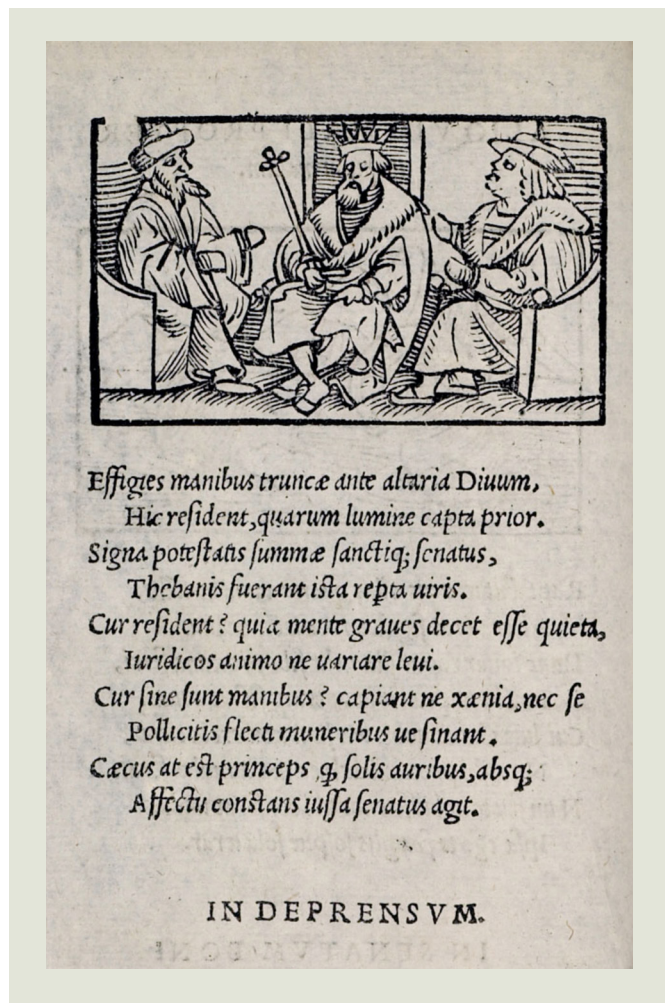 Effigies manibus truncæ ante altaria Diuum,
Hic reſident, quarum lumine capta prior.
Signa poteſtatis ſummæ ſanctiq; ſenatus,
Thebanis fuerant iſta reꝑta uiris.
Cur reſident? quia mente graues decet eſſe quieta,
Iuridicos animo ne uariare leui.
Cur ſine ſunt manibus? capiant ne xænia, nec ſe
Pollicitis flecti muneribus ue ſinant.
Cæcus at eſt princeps ꝙ, ſolis auribus, absq;
Affectu conſtans iuſſa ſenatus agit.
IN DEPRENSVM.